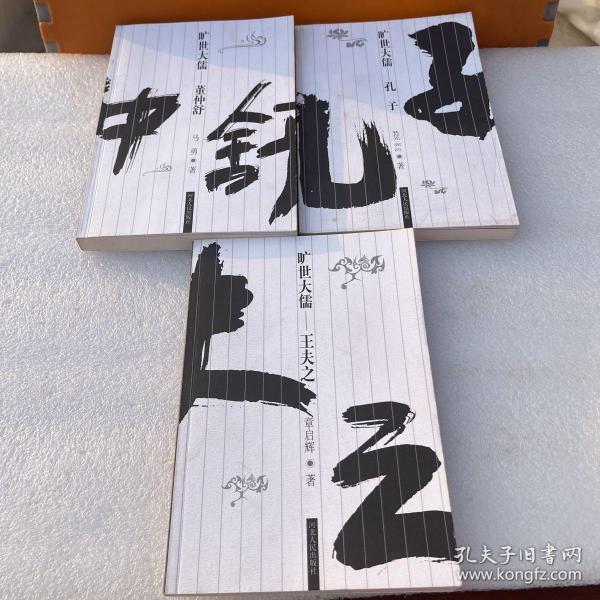 旷世大儒——董仲舒
马勇 著
河北人民出版社
仲舒
旷世大儒——孔子
著
河北人民出版社
孔子
旷世大儒——王夫之
章启辉 著
河北人民出版社
夫之
孔夫子旧书网
www.kongfz.com